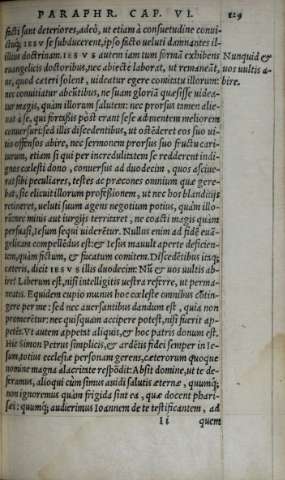 PARAPHR. CAP. VI. 129
facti sunt deteriores, adeò, ut etiam à consuetudine conui-
ctuq; IESV se subducerent, ipso facto ueluti damnantes il-
lius doctrinam. IESVS autem iam tum formā exhibens
euangelicis doctoribus, nec abiecte laborat, ut remaneāt,
ne, quod cæteri solent, uideatur egere comitatu illorum:
nec conuitiatur abeūtibus, ne suam gloriā quæsisse uidea-
tur magis, quàm illorum salutem: nec prorsus tamen alie-
nat à se, qui fortassis pòst erant sese ad mentem meliorem
conuersuri: sed illis discedentibus, ut ostēderet eos suo ui-
tio offensos abire, nec sermonem prorsus suo fructu cari-
turum, etiam si qui per incredulitatem se redderent indi-
gnos cœlesti dono, conuersus ad duodecim, quos asciue-
rat sibi peculiares, testes ac præcones omnium quæ gere-
bat, sic elicuit illorum professionem, ut nec hos blanditijs
retineret, ueluti suum agens negotium potius, quàm illo-
rū: nec minis aut iurgijs territaret, ne coacti magis quàm
persuasi, Iesum sequi uiderētur. Nullus enim ad fidē euā-
gelicam compellēdus est: & Iesus mauult aperte deficien-
tem, quàm fictum, & fucatum comitem. Discedētibus itaq;
cæteris, dicit IESVS illis duodecim: Nū & uos uultis ab-
ire? Liberum est, nisi intelligitis uestra referre, ut perma-
neatis. Equidem cupio munus hoc cœleste omnibus cōtin-
gere per me: sed nec auersantibus dandum est, quia non
promerētur: nec quisquam accipere potest, nisi fuerit ap-
petēs. Vt autem appetat aliquis, & hoc patris donum est.
Hic Simon Petrus simplicis, & ardētis fidei semper in Ie-
sum, totius ecclesiæ personam gerens, cæterorum quoque
nomine magna alacritate respōdit: Absit domine, ut te de-
seramus, alioqui cùm simus auidi salutis æternæ, quumq;
non ignoremus quàm frigida sint ea, quæ docent phari-
sæi: quumq; audierimus Ioannem de te testificantem, ad
Ii quem
Nunquid &
uos uultis a-
bire.